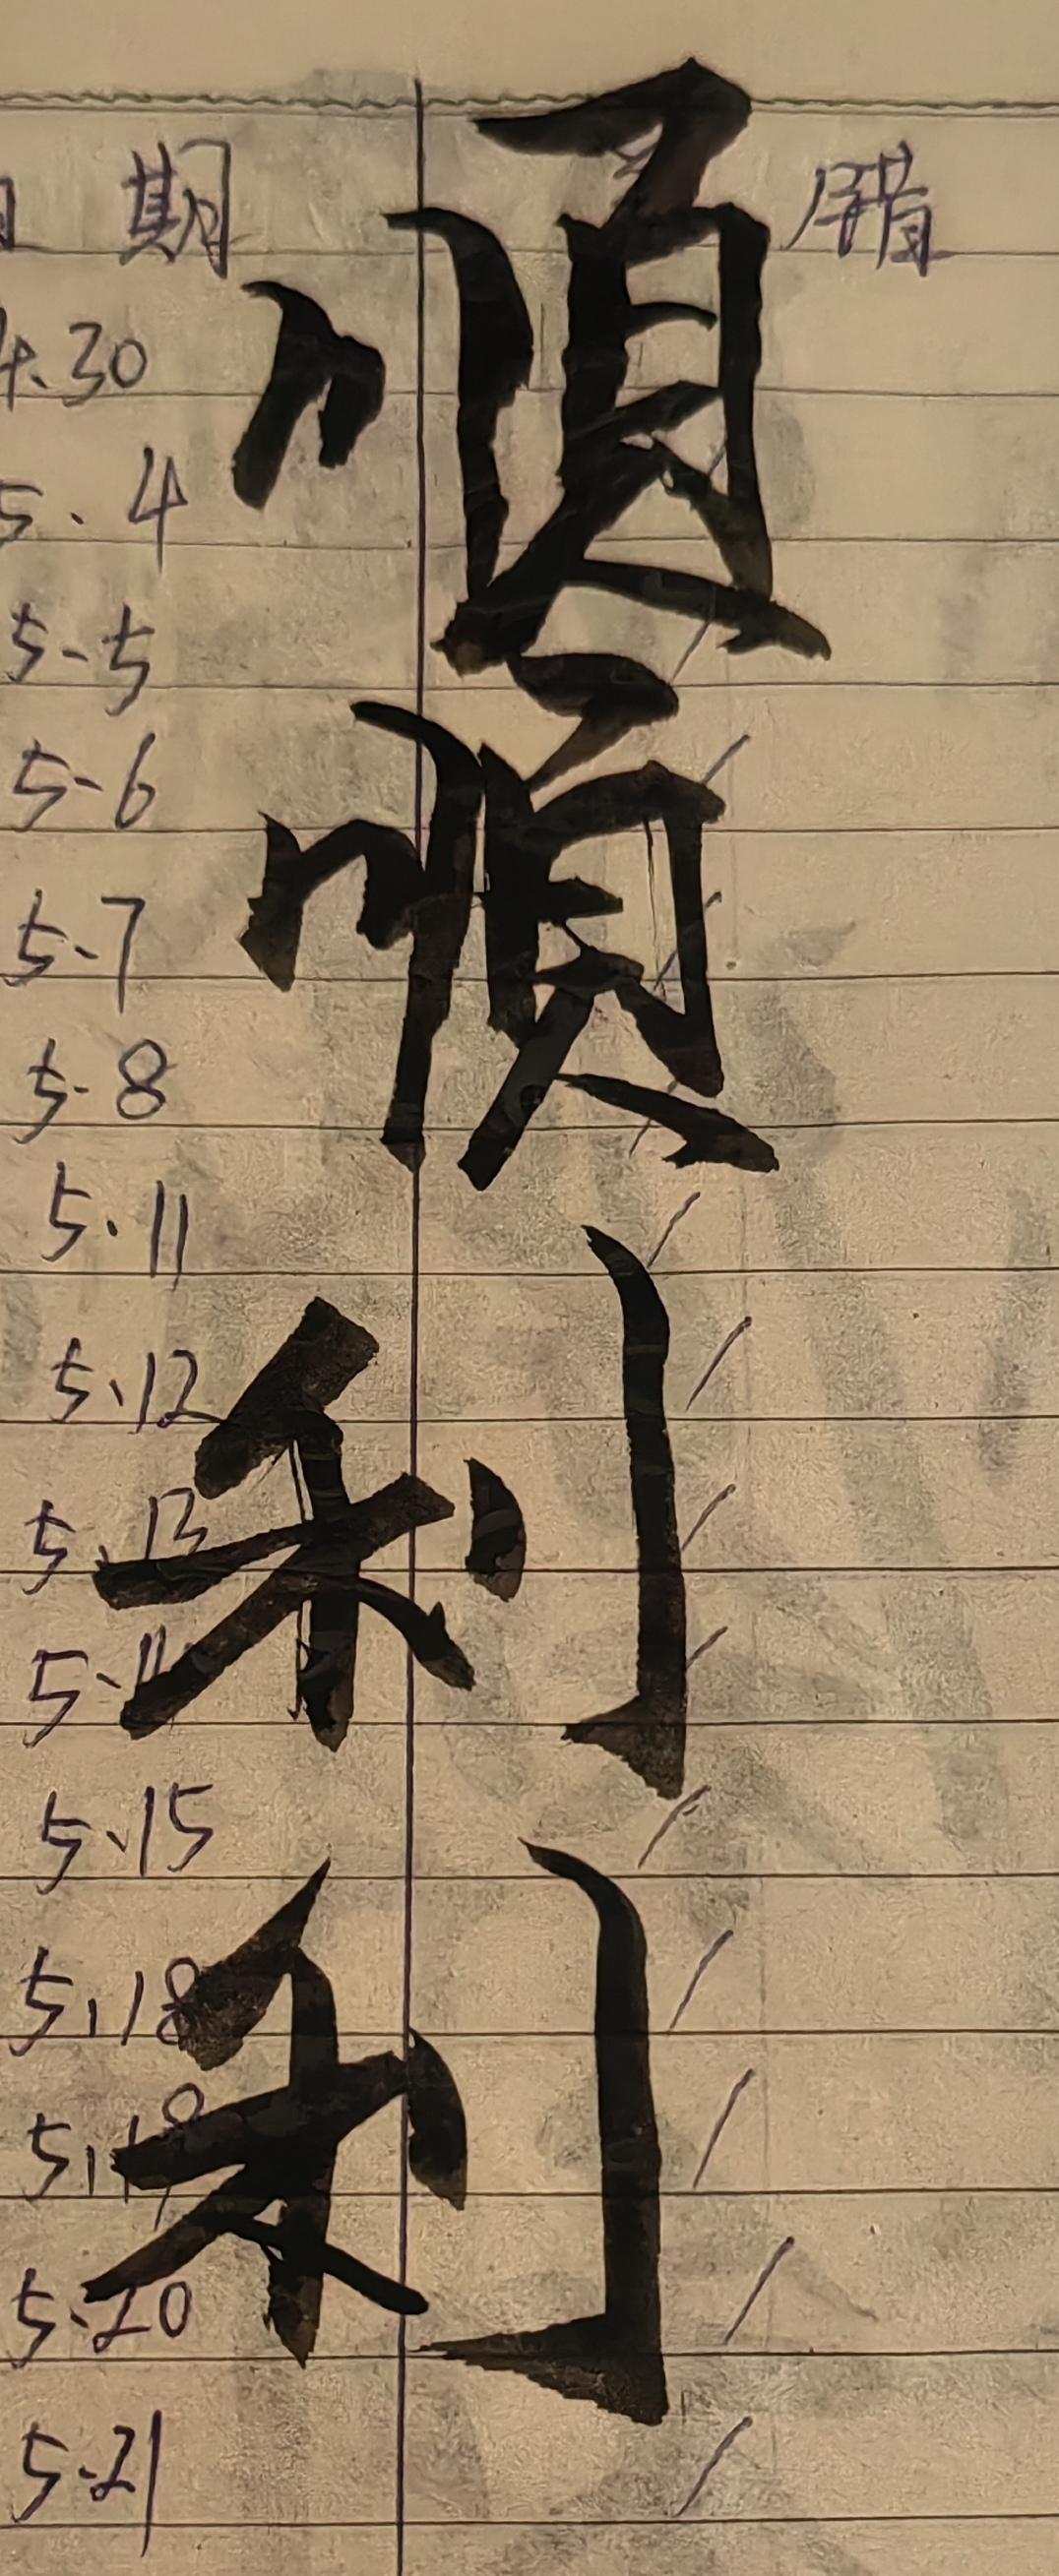 順
順
利
利
日期 错
4.30
5.4
5-5
5-6
5-7
5-8
5.11
5.12
5.13
5.15
5.18
5.19
5.20
5.21